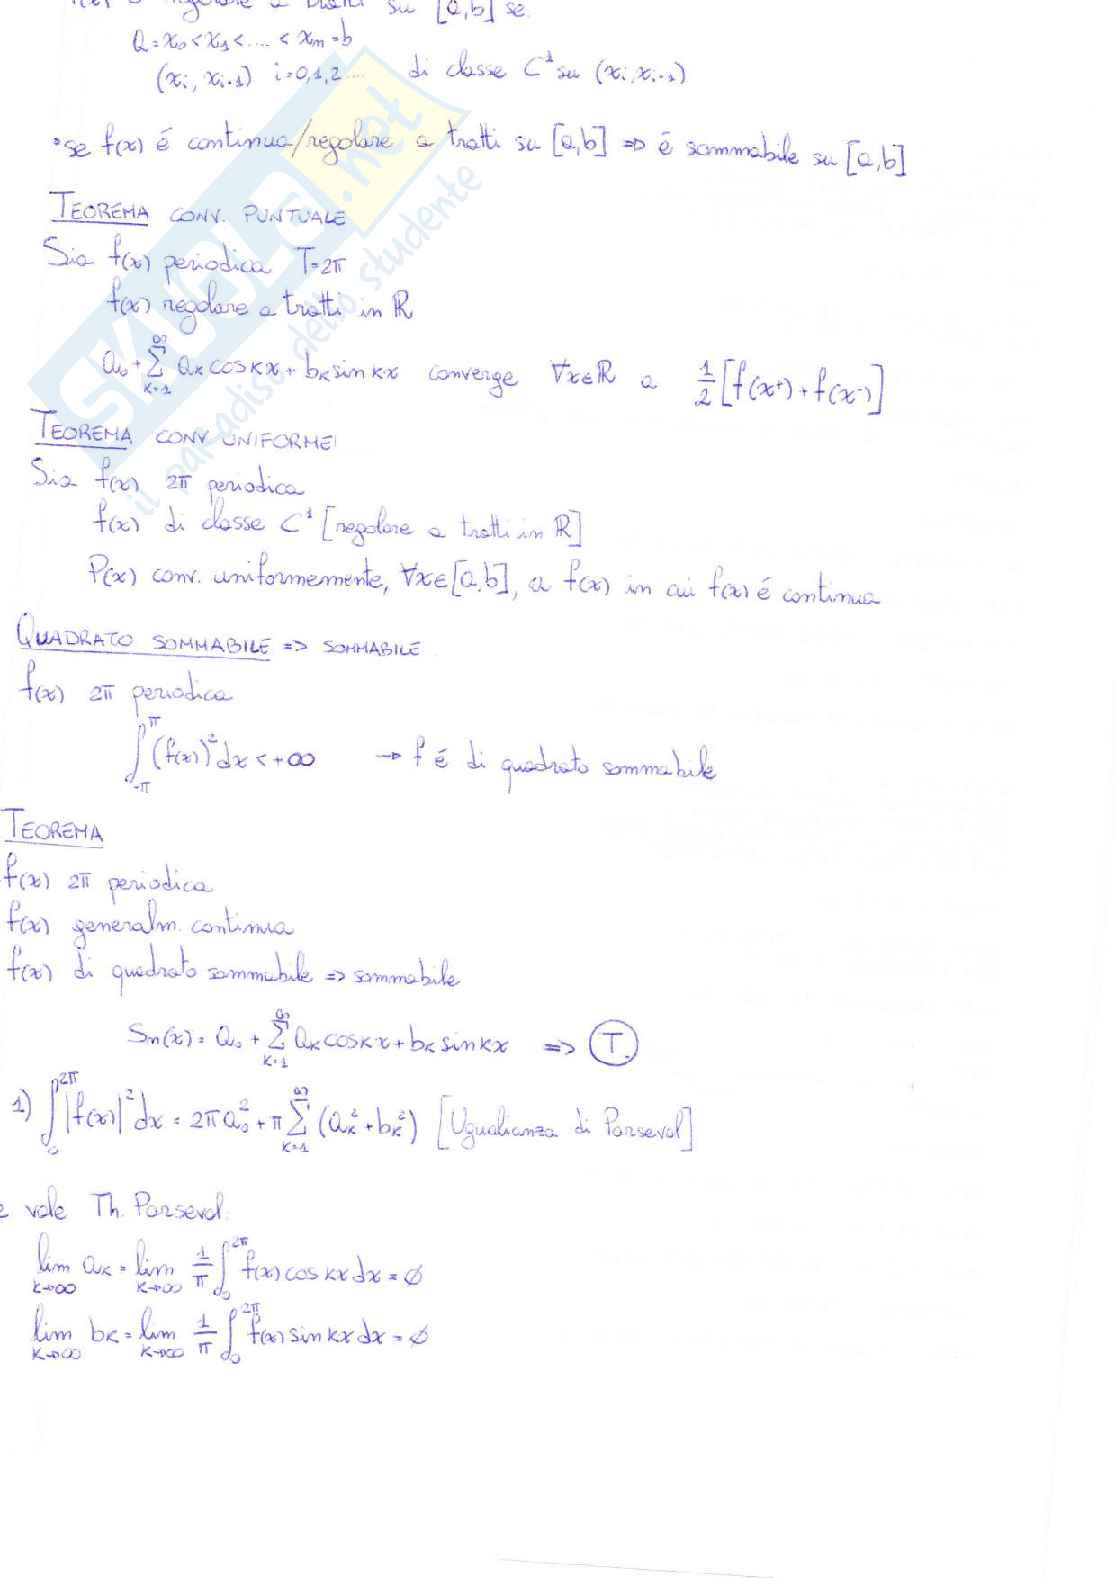 regolare a tratti su [a,b] se
a=x₀<x₁<....<xₘ=b
(xᵢ, xᵢ₊₁) i=0,1,2.... di classe C¹ su (xᵢ, xᵢ₊₁)
•se f(x) é continua/regolare a tratti su [a,b] => é sommabile su [a,b]
TEOREMA CONV. PUNTUALE
Sia f(x) periodica T=2π
f(x) regolare a tratti in ℝ
a₀+∑_{k=1}^{∞} aₖcoskx+bₖsinkx converge ∀x∈ℝ a 1/2[f(x⁺)+f(x⁻)]
TEOREMA CONV UNIFORME
Sia f(x) 2π periodica
f(x) di classe C¹ [regolare a tratti in ℝ]
P(x) conv. uniformemente, ∀x∈[a,b], a f(x) in cui f(x) é continua
QUADRATO SOMMABILE => SOMMABILE
f(x) 2π periodica
∫_{-π}^{π}(f(x))²dx<+∞ → f é di quadrato sommabile
TEOREMA
f(x) 2π periodica
f(x) generalm. continua
f(x) di quadrato sommabile => sommabile
Sn(x)= a₀+∑_{k=1}^{∞} aₖcoskx+bₖsinkx => T.
1) ∫_{0}^{2π}|f(x)|²dx = 2πa₀²+π∑_{k=1}^{∞}(aₖ²+bₖ²) [Uguaglianza di Parseval]
e vale Th. Parseval:
lim_{k→∞} aₖ = lim_{k→∞} 1/π ∫_{0}^{2π} f(x)coskxdx = ∅
lim_{k→∞} bₖ = lim_{k→∞} 1/π ∫_{0}^{2π} f(x)sinkxdx = ∅
SKUOLA.net
il paradiso dello studente